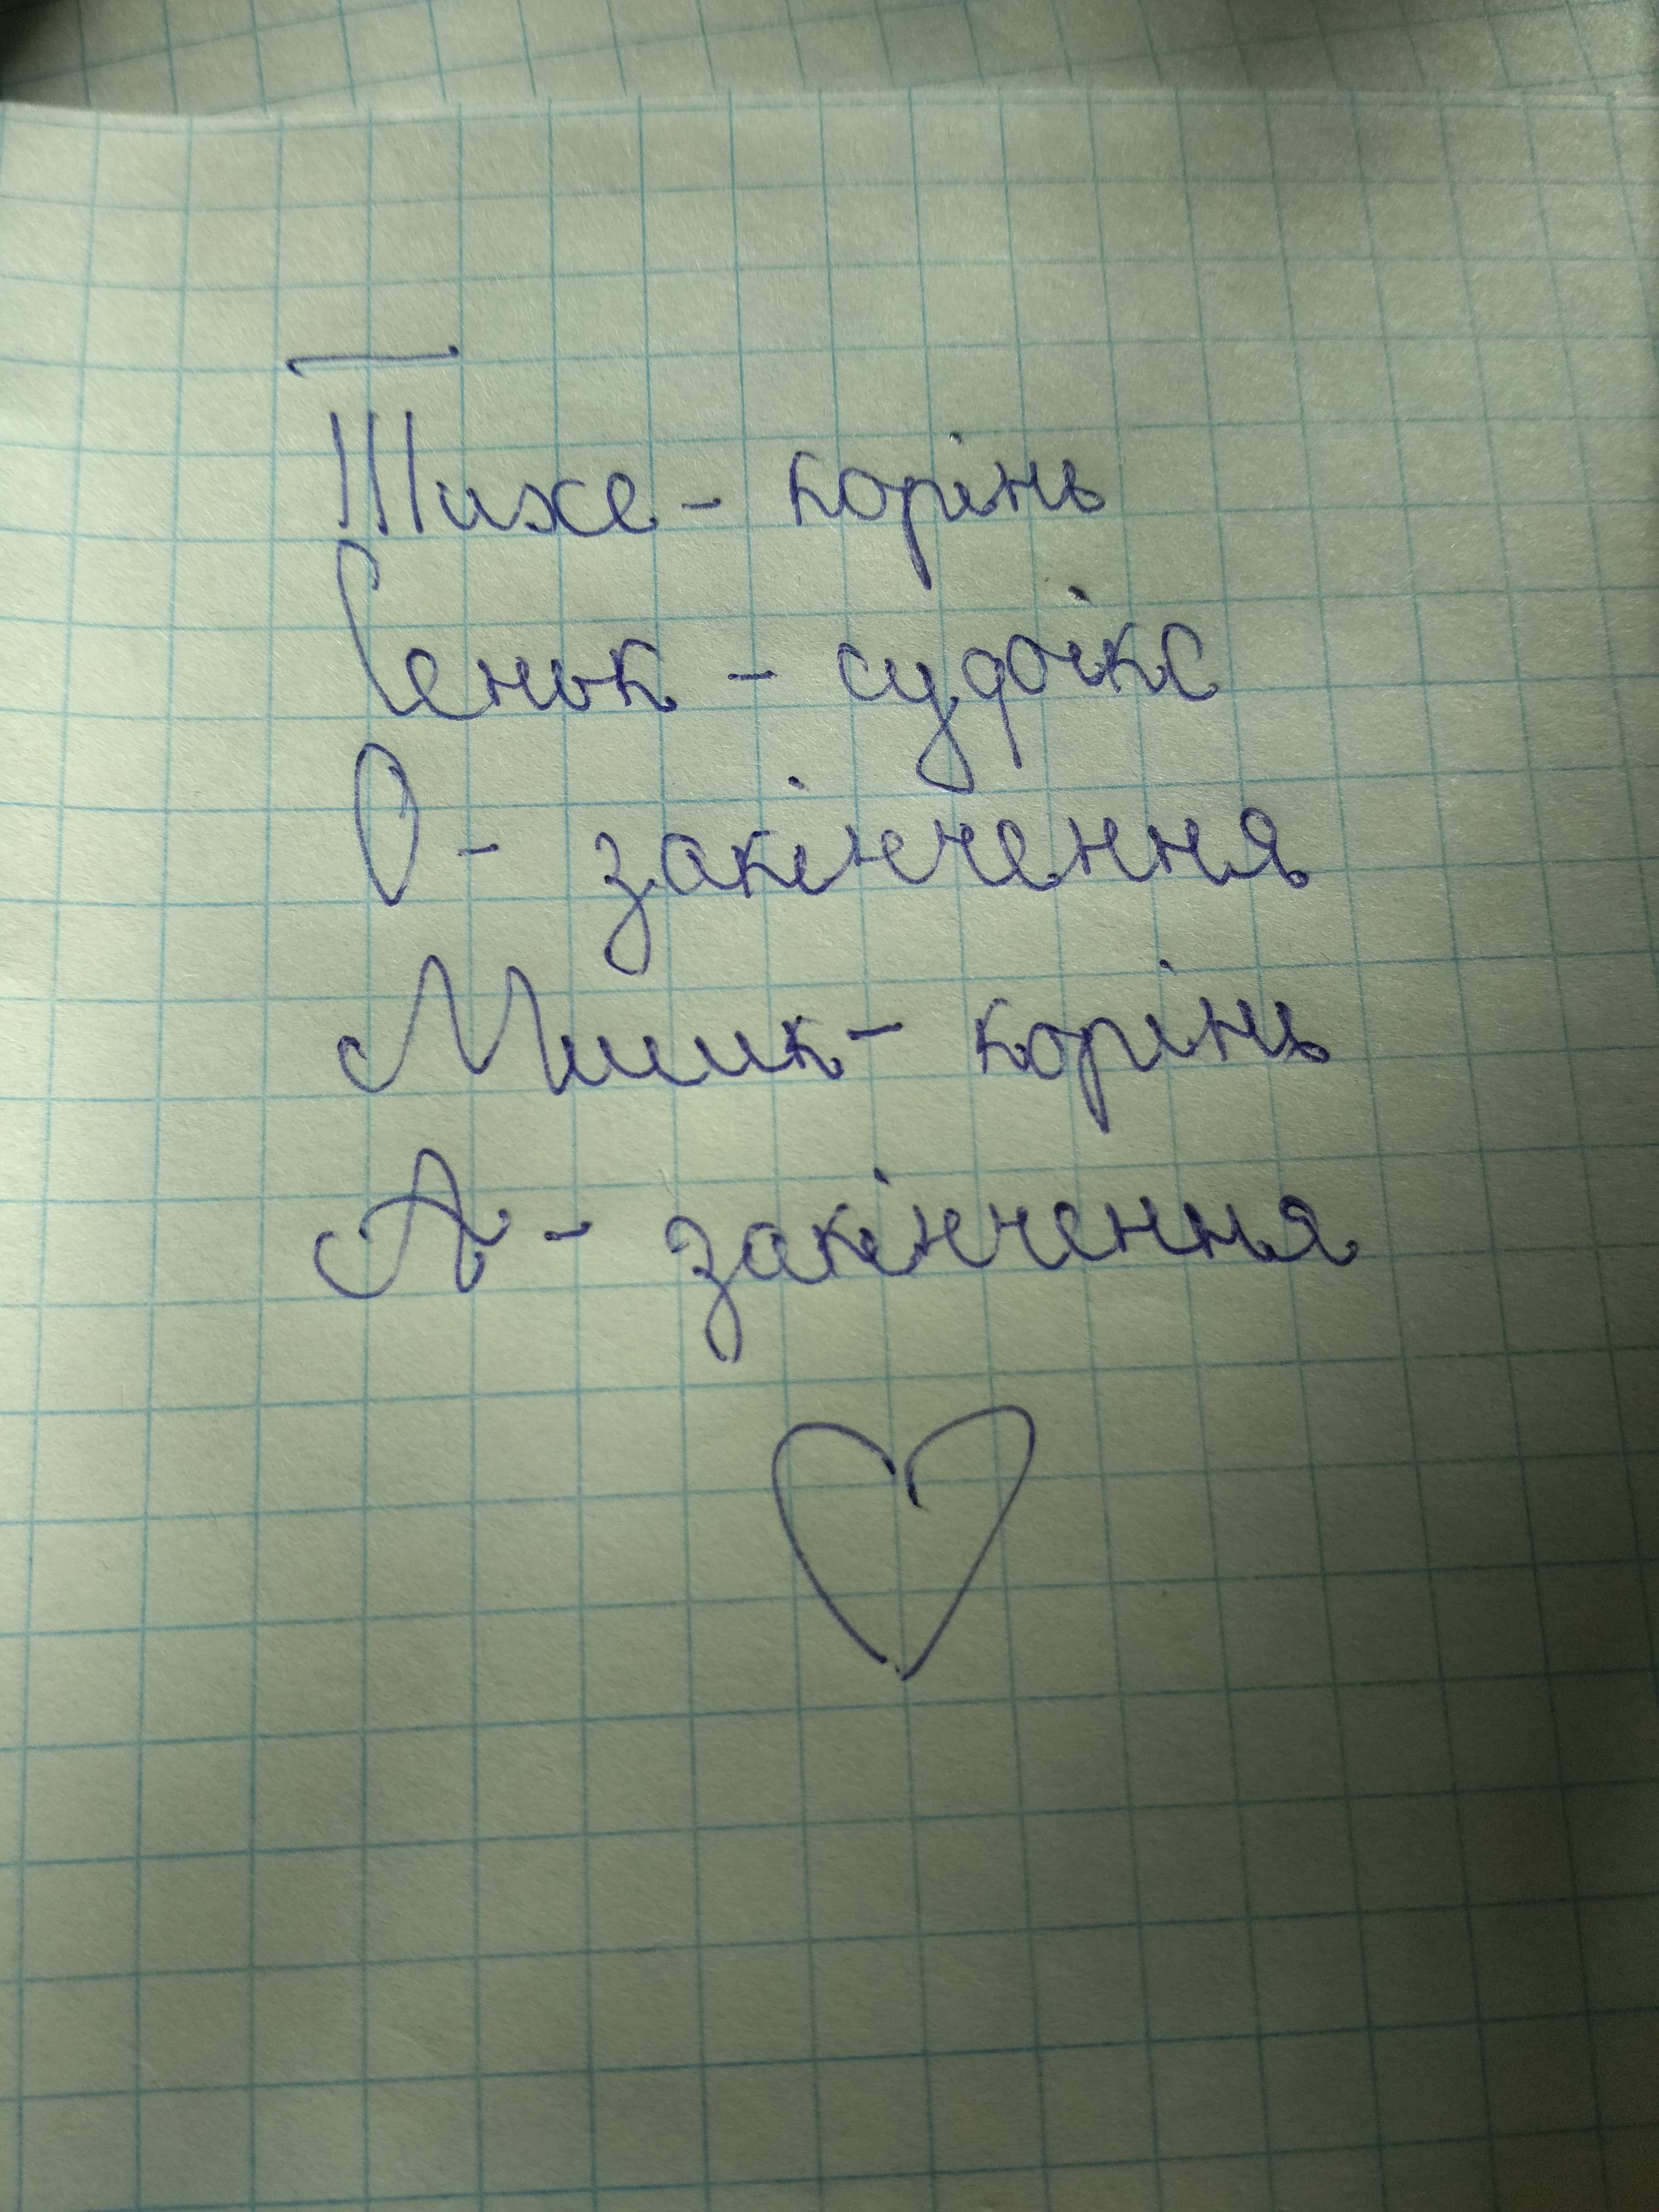 Тихе - корінь
Сеньк - суфікс
О - закінчення
Мишк - корінь
А - закінчення